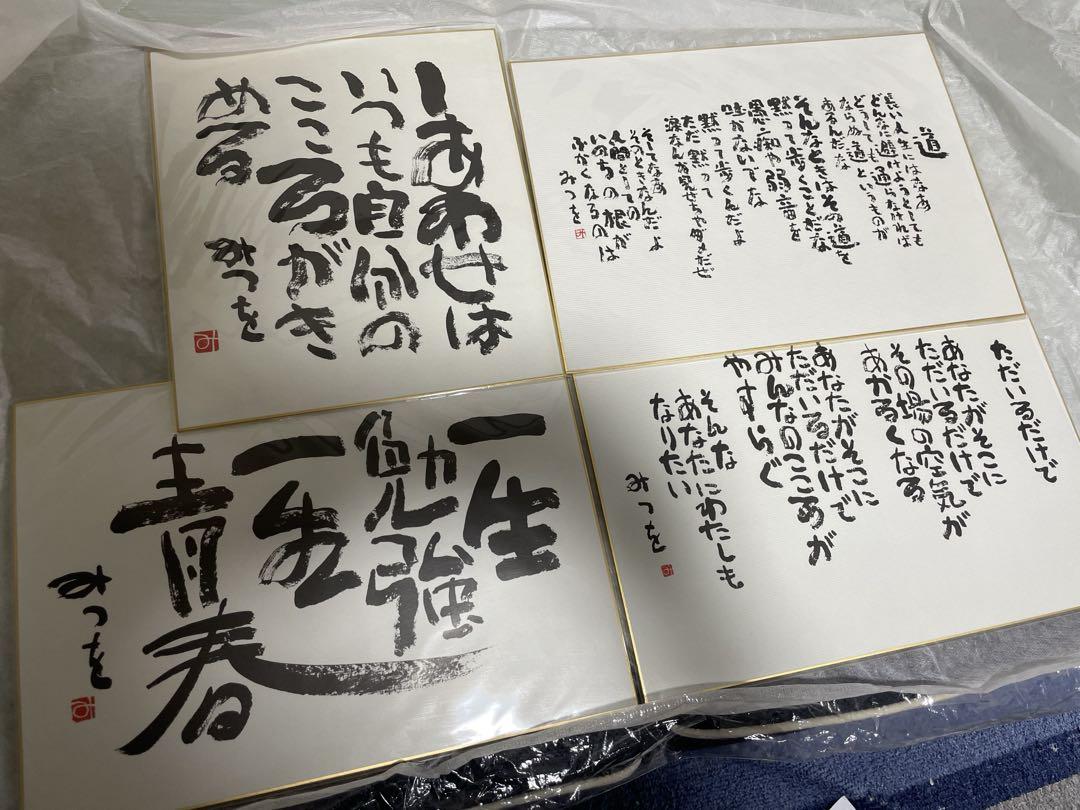 しあわせは
いつも自分の
こころがき
める
みつを
道
長い人生にはなあ
どんなに避けようとしても
どうしても通らなければ
ならぬ道というものが
あるんだな
そんなときはその道を
黙って歩くことだな
愚痴や弱音を
吐かないでな
黙って歩くんだよ
ただ黙って
涙なんか見せちゃダメだぜ
そしてなあ
そのときなんだよ
人間としての
いのちの根が
ふかくなるのは
みつを
一生
勉強
一生
青春
みつを
ただいるだけで
あなたがそこに
ただいるだけで
その場の空気が
あかるくなる
あなたがそこに
ただいるだけで
みんなのこころが
やすらぐ
そんな
あなたにわたしも
なりたい
みつを